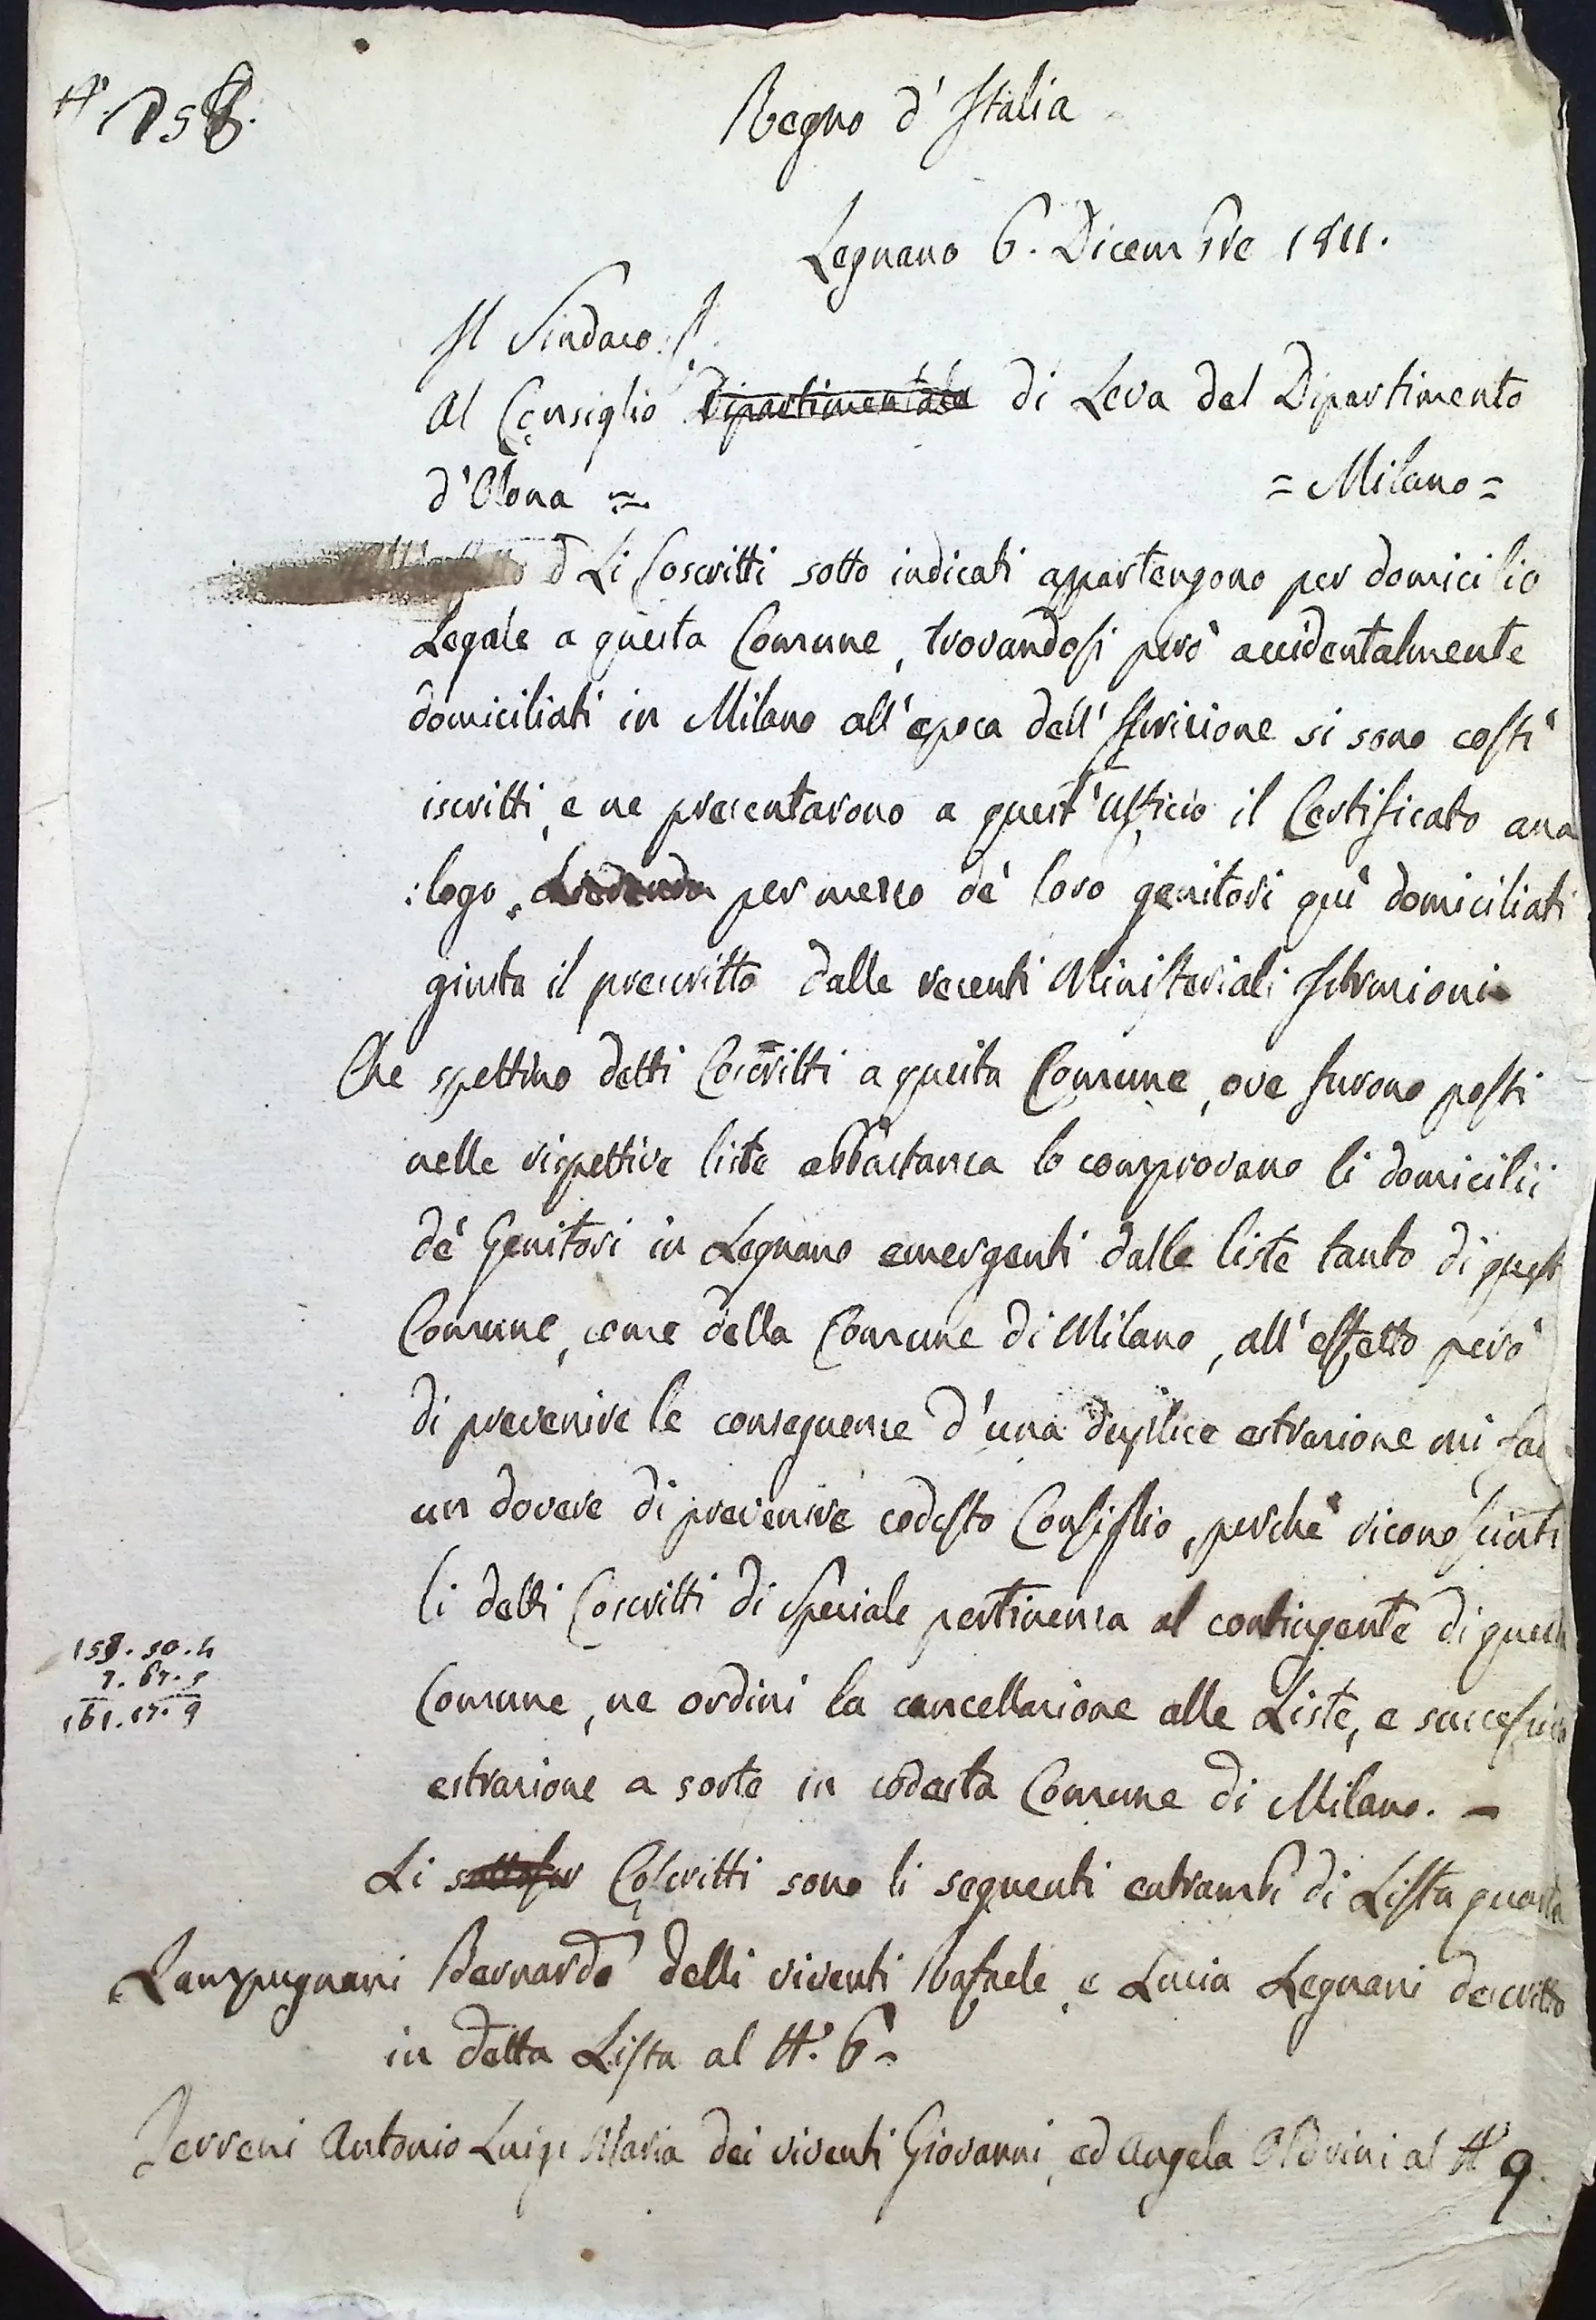 N.° 158.
Regno d'Italia
Legnano 6. Dicembre 1811.
Il Sindaco
Al Consiglio Dipartimentale di Leva del Dipartimento
d'Olona =
= Milano =
Li Coscritti sotto indicati appartengono per domicilio
Legale a questa Comune, trovandosi però accidentalmente
domiciliati in Milano all'epoca dell'Iscrizione si sono costì
iscritti, e ne presentarono a quest'Ufficio il Certificato ana
:logo per mezzo de' loro genitori quì domiciliati
giusta il prescritto dalle recenti Ministeriali Istruzioni
Che spettino detti Coscritti a questa Comune, ove furono posti
nelle rispettive liste abbastanza lo comprovano li domicilii
de' Genitori in Legnano emergenti dalle liste tanto di
Comune, come della Comune di Milano, all'effetto però
di prevenire le conseguenze d'una duplice estrazione mi
un dovere di prevenire codesto Consiglio, perchè riconosciuti
li detti Coscritti di speciale pertinenza al contingente di
Comune, ne ordini la cancellazione alle Liste, e
estrazione a sorte in codesta Comune di Milano. -
Li Coscritti sono li seguenti entrambi di Lista quarta
Lampugnani Bernardo delli viventi Rafaele, e Lucia Legnani descritto
in detta Lista al N.° 6 =
Antonio Luigi Maria dei viventi Giovanni, ed Angela Oldrini al N.° 9.
161.17.9